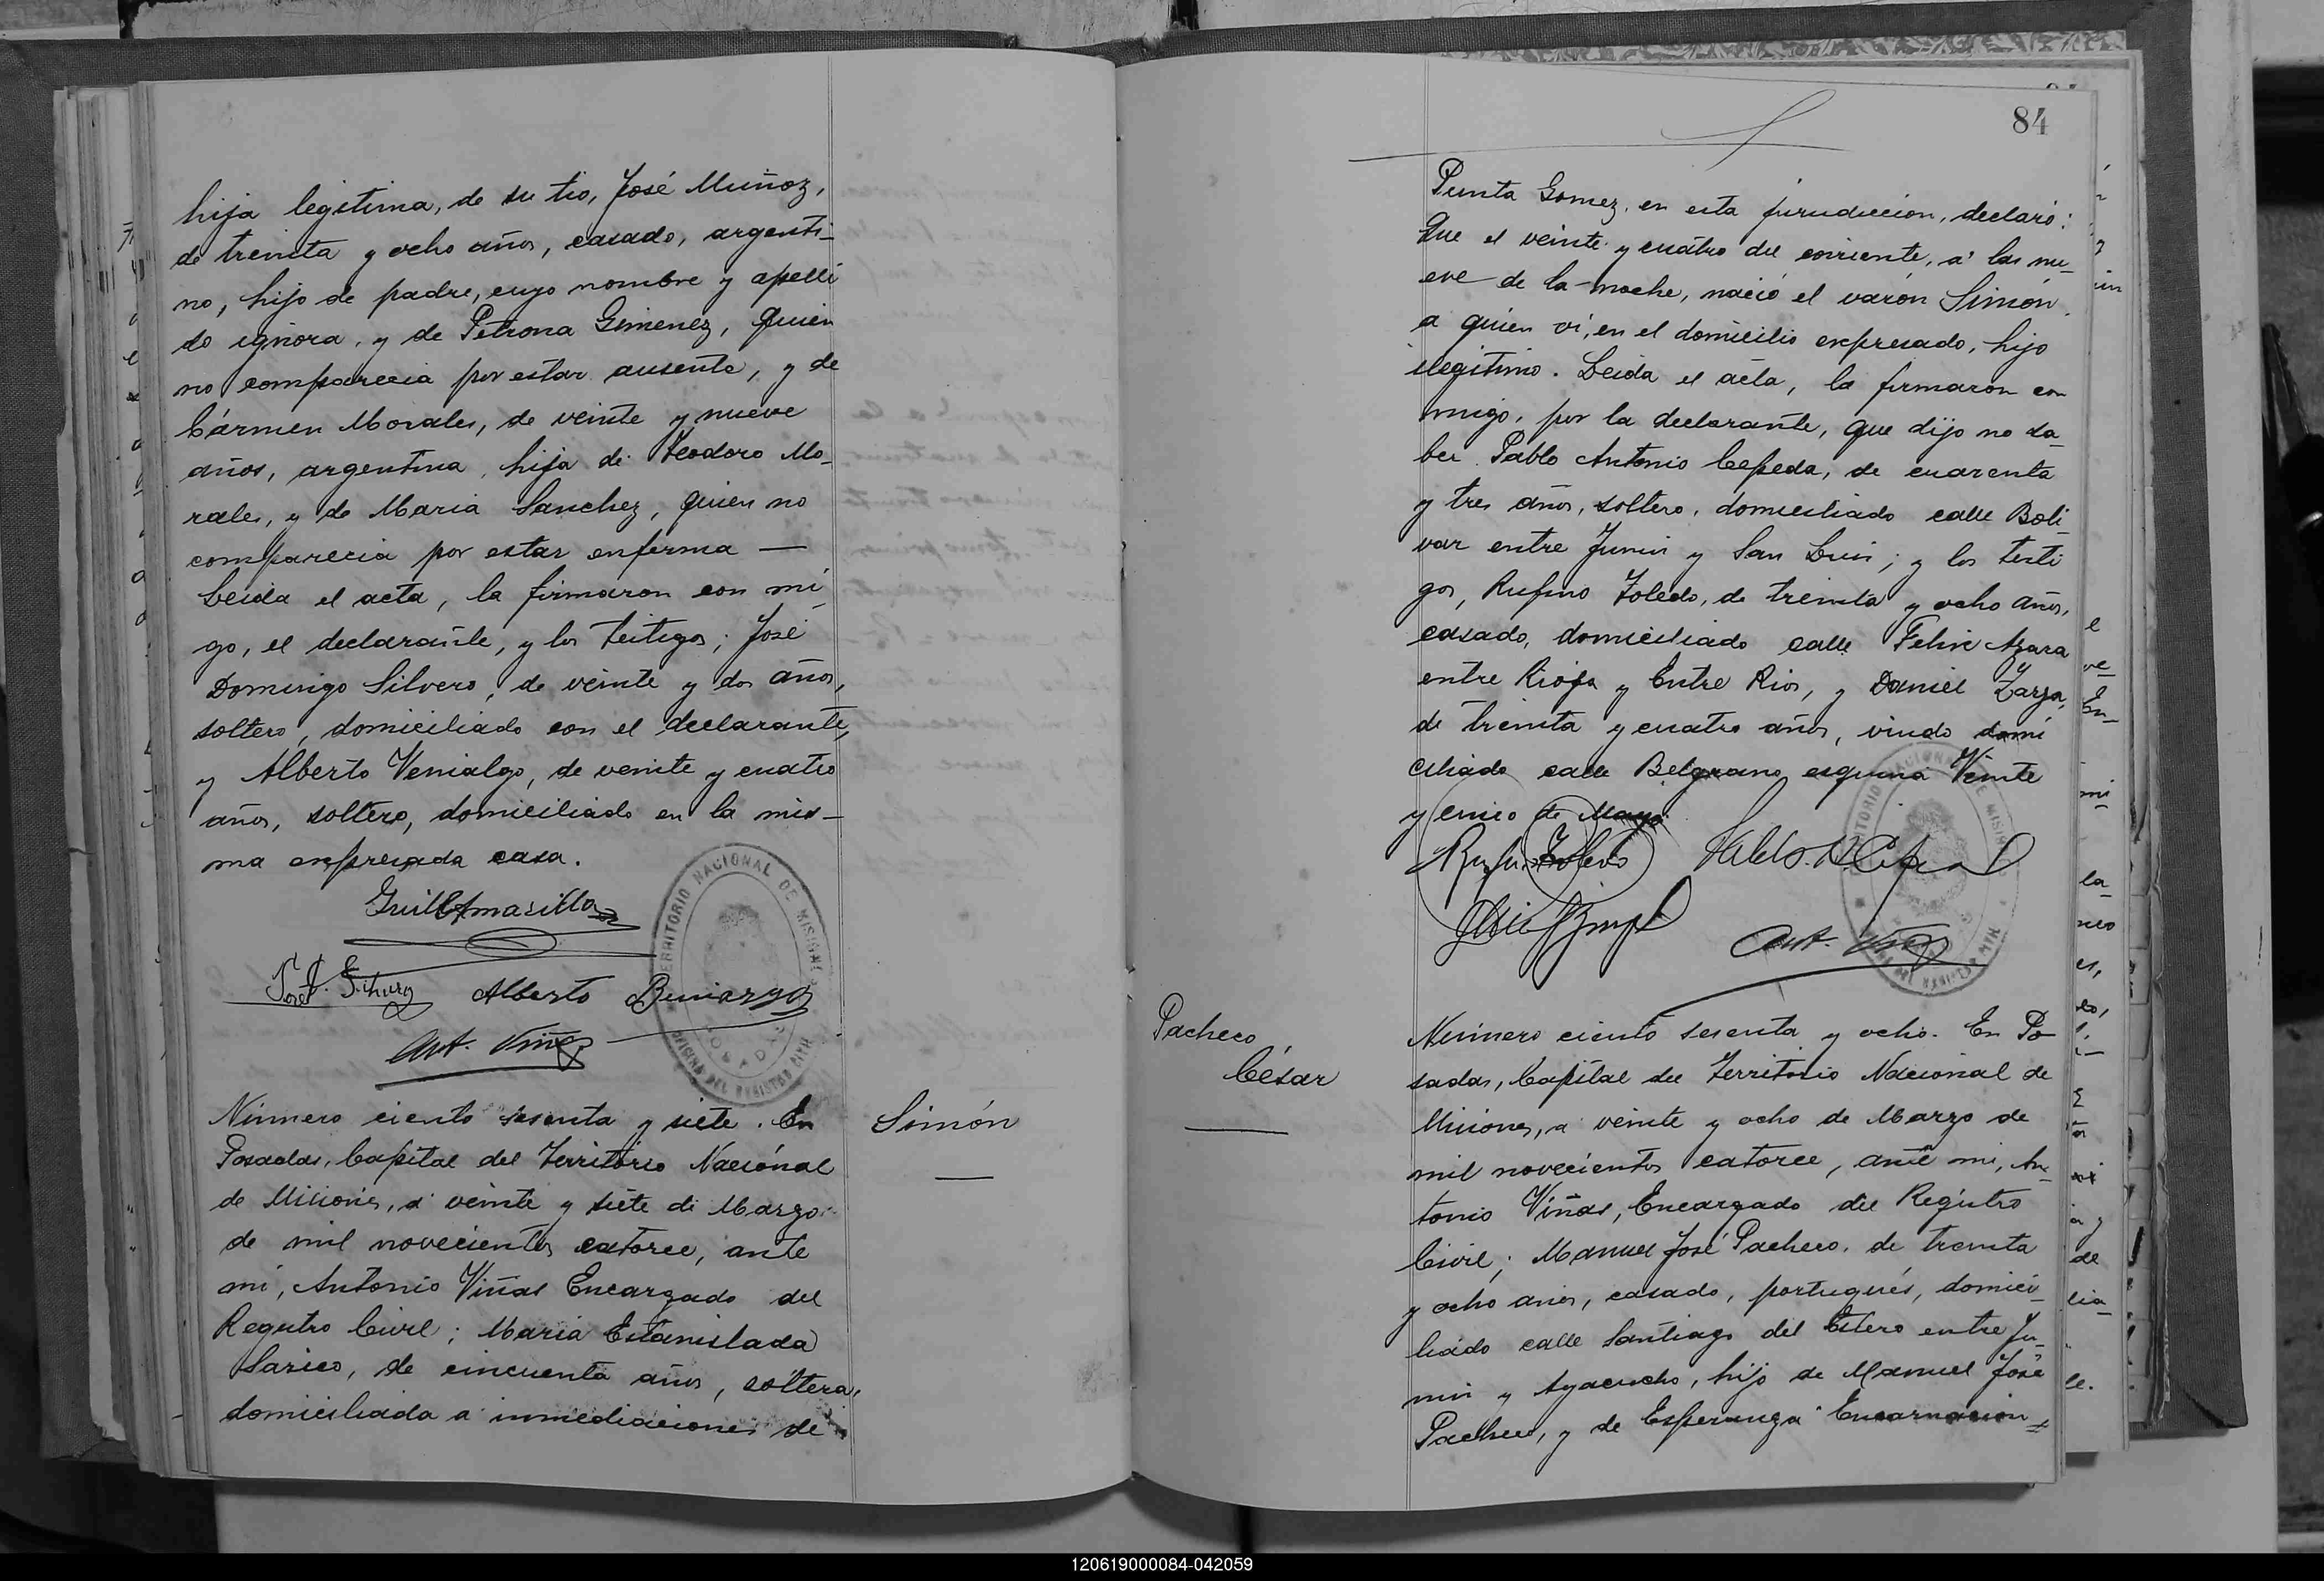 hija legitima, de su tio, José Muñoz,
de treinta y ocho años, casado, argenti-
no, hijo de padre, cuyo nombre y apelli
do ignora, y de Petrona Gimenez, quien
no comparecia por estar ausente, y de
Cármen Morales, de veinte y nueve
años, argentina, hija de Teodoro Mo-
rales, y de Maria Sanchez, quien no
comparecia por estar enferma —
Leida el acta, la firmaron con mi
go, el declarante, y los testigos; José
Domingo Silvero, de veinte y dos años,
soltero, domiciliado con el declarante,
y Alberto Venialgo, de veinte y cuatro
años, soltero, domiciliado en la mis-
ma expresada casa.
TERRITORIO NACIONAL DE MISIONES
OFICINA DEL REGISTRO CIVIL
POSADAS
Alberto
Ant. Viñas
Número ciento sesenta y siete. En
Posadas, Capital del Territorio Nacional
de Misiones, á veinte y siete de Marzo
de mil novecientos catorce, ante
mi, Antonio Viñas Encargado del
Registro Civil; Maria Estanislada
de cincuenta años, soltera,
domiciliada a inmediaciones de
Simón
84
Punta Gomez, en esta jurisdiccion, declaró:
Que el veinte y cuatro del corriente, á las nu-
eve de la noche, nació el varón Simón,
a quien vi, en el domicilio expresado, hijo
ilegitimo. Leida el acta, la firmaron con
migo, por la declarante, que dijo no sa-
ber Pablo Antonio Cepeda, de cuarenta
y tres años, soltero, domiciliado calle Boli
var entre Junin y San Luis; y los testi
gos, Rufino Toledo, de treinta y ocho años,
casado, domiciliado calle Felix Azara
entre Rioja y Entre Rios, y Daniel Zarza,
de treinta y cuatro años, viudo domi
ciliado calle Belgrano esquina Veinte
y cinco de Mayo.
Rufino Toledo
Ant. Viñas
Pacheco,
César
Número ciento sesenta y ocho. En Po-
sadas, Capital del Territorio Nacional de
Misiones, a veinte y ocho de Marzo de
mil novecientos catorce, ante mi, An-
tonio Viñas, Encargado del Registro
Civil; Manuel José Pacheco, de treinta
y ocho años, casado, portugués, domici-
liado calle Santiago del Estero entre Ju-
nin y Ayacucho, hijo de Manuel José
Pacheco, y de Esperanza Encarnacion
120619000084-042059